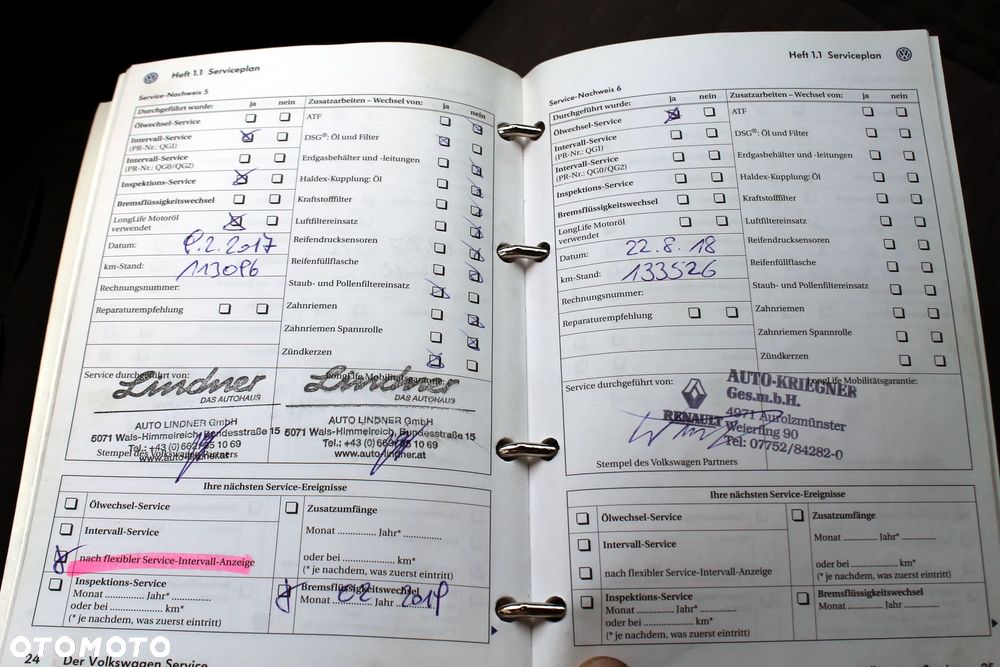 Heft 1.1 Serviceplan
Service-Nachweis 5
Durchgeführt wurde: ja nein
Ölwechsel-Service
Intervall-Service
(PR-Nr.: QG1)
Intervall-Service
(PR-Nr.: QG0/QG2)
Inspektions-Service
Bremsflüssigkeitswechsel
LongLife Motoröl
verwendet
Datum: 8.2.2017
km-Stand: 113096
Rechnungsnummer:
Reparaturempfehlung
Zusatzarbeiten – Wechsel von: ja nein
ATF
DSG®: Öl und Filter
Erdgasbehälter und -leitungen
Haldex-Kupplung: Öl
Kraftstofffilter
Luftfiltereinsatz
Reifendrucksensoren
Reifenfüllflasche
Staub- und Pollenfiltereinsatz
Zahnriemen
Zahnriemen Spannrolle
Zündkerzen
Service durchgeführt von:
LongLife Mobilitätsgarantie:
Lindner
DAS AUTOHAUS
AUTO LINDNER GmbH
5071 Wals-Himmelreich, Bundesstraße 15
Tel.: +43 (0) 662/85 10 69
www.auto-lindner.at
Lindner
DAS AUTOHAUS
AUTO LINDNER GmbH
5071 Wals-Himmelreich, Bundesstraße 15
Tel.: +43 (0) 662/85 10 69
www.auto-lindner.at
Stempel des Volkswagen Partners
Ihre nächsten Service-Ereignisse
Ölwechsel-Service
Intervall-Service
nach flexibler Service-Intervall-Anzeige
Inspektions-Service
Monat .............. Jahr* ..............
oder bei .................... km*
(* je nachdem, was zuerst eintritt)
Zusatzumfänge
Monat .............. Jahr* ..............
oder bei .................... km*
(* je nachdem, was zuerst eintritt)
Bremsflüssigkeitswechsel
Monat 02 Jahr 2019
24 Der Volkswagen Service
Heft 1.1 Serviceplan
Service-Nachweis 6
Durchgeführt wurde: ja nein
Ölwechsel-Service
Intervall-Service
(PR-Nr.: QG1)
Intervall-Service
(PR-Nr.: QG0/QG2)
Inspektions-Service
Bremsflüssigkeitswechsel
LongLife Motoröl
verwendet
Datum: 22.8.18
km-Stand: 133526
Rechnungsnummer:
Reparaturempfehlung
Zusatzarbeiten – Wechsel von: ja nein
ATF
DSG®: Öl und Filter
Erdgasbehälter und -leitungen
Haldex-Kupplung: Öl
Kraftstofffilter
Luftfiltereinsatz
Reifendrucksensoren
Reifenfüllflasche
Staub- und Pollenfiltereinsatz
Zahnriemen
Zahnriemen Spannrolle
Zündkerzen
Service durchgeführt von:
LongLife Mobilitätsgarantie:
AUTO-KRIEGNER
Ges.m.b.H.
RENAULT
4971 Aurolzmünster
Weierfing 90
Tel: 07752/84282-0
Stempel des Volkswagen Partners
Ihre nächsten Service-Ereignisse
Ölwechsel-Service
Intervall-Service
nach flexibler Service-Intervall-Anzeige
Inspektions-Service
Monat .............. Jahr* ..............
oder bei .................... km*
(* je nachdem, was zuerst eintritt)
Zusatzumfänge
Monat .............. Jahr* ..............
oder bei .................... km*
(* je nachdem, was zuerst eintritt)
Bremsflüssigkeitswechsel
Monat .............. Jahr ..............
OTOMOTO